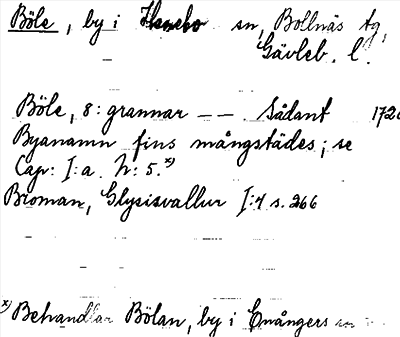 Böle, by i Henebo sn, Bollnäs tg,
Gävleb. l.
Böle, 8: grannar — —. Sådant 172
Byanamn fins mångstädes; se
Cap: I:a. N: 5.x)
Broman, Glysisvallur I:4 s. 266
x) Behandlar Bölan, by i Enångers sn